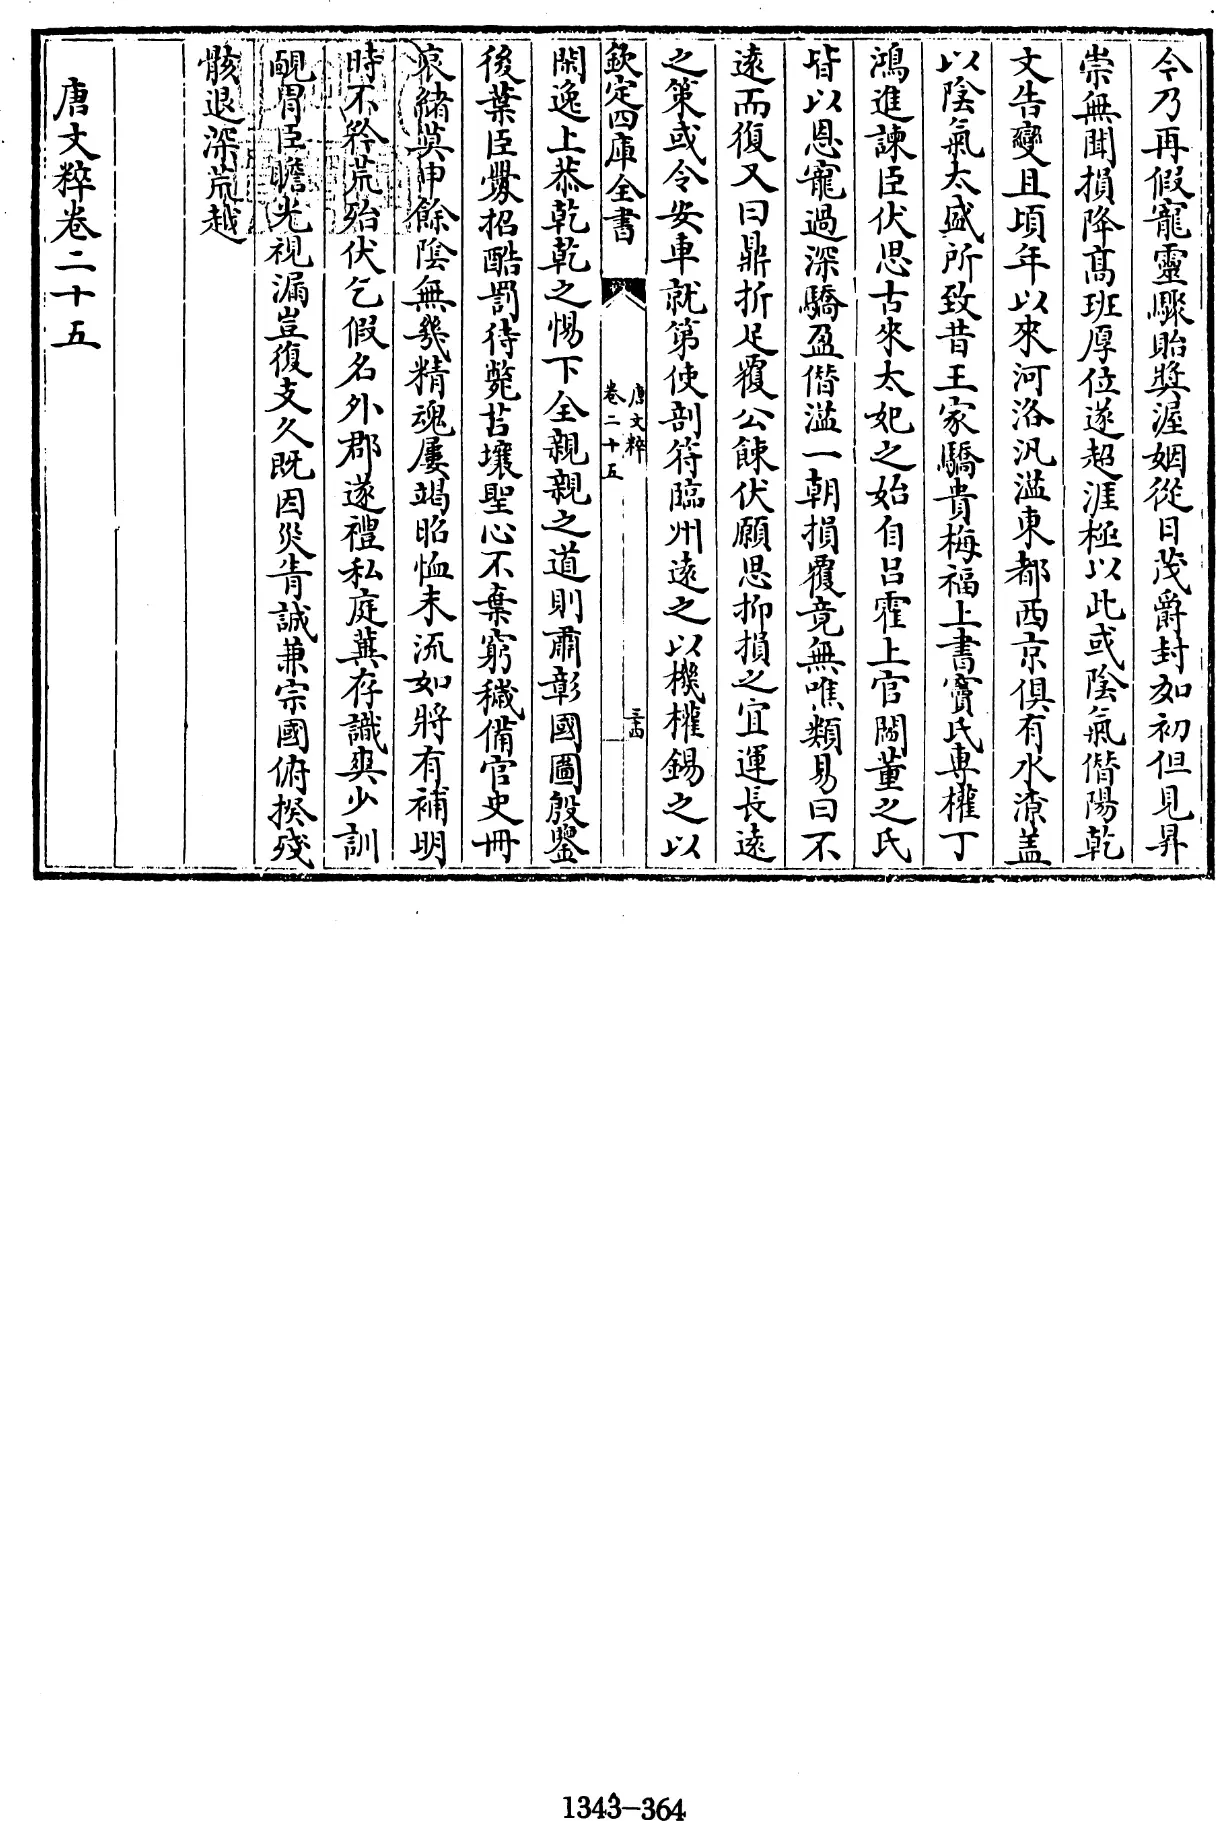 今乃再假寵靈驟貽奬渥姻從日茂爵封如初但見昇
崇無聞損降髙班厚位遂超涯極以此或陰氣僭陽乾
文告變且頃年以來河洛汎溢東都西京俱有水潦盖
以陰氣太盛所致昔王家驕貴梅福上書竇氏專權丁
鴻進諫臣伏思古來太妃之始自呂霍上官閻董之氏
皆以恩寵過深驕盈僭溢一朝損覆竟無噍類易曰不
遠而復又曰鼎折足覆公餗伏願思抑損之宜運長遠
之策或令安車就第使剖符臨州遠之以機權錫之以
欽定四庫全書
唐文粹
卷二十五
三十四
閑逸上恭乾乾之惕下全親親之道則肅彰國圖殷鑒
後葉臣釁招酷罰待斃苫壤聖心不棄窮穢備官史冊
哀緒莫申餘陰無幾精魂屢竭昭恤末流如將有補明
時不矜荒殆伏乞假名外郡遂禮私庭冀存識爽少訓
覼胃臣瞻光視漏豈復支久既因災眚誠兼宗國俯揆殘
骸退深荒越
唐文粹卷二十五
1343-364